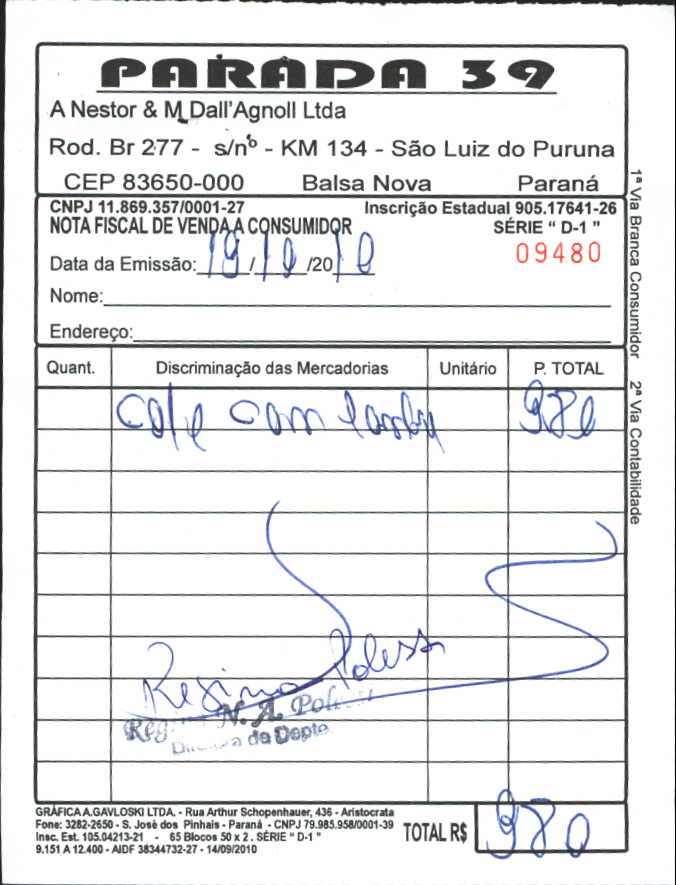 PARADA 39
A Nestor & M Dall'Agnoll Ltda
Rod. Br 277 - s/nº - KM 134 - São Luiz do Puruna
CEP 83650-000 Balsa Nova Paraná
CNPJ 11.869.357/0001-27 Inscrição Estadual 905.17641-26
NOTA FISCAL DE VENDA A CONSUMIDOR SÉRIE " D-1 "
Data da Emissão: 19/10/2010 09480
Nome:
Endereço:
Quant. Discriminação das Mercadorias Unitário P. TOTAL
Cafe com 980
Regina Polessi
Regi N. A. Pol
da Depto.
GRÁFICA A.GAVLOSKI LTDA. - Rua Arthur Schopenhauer, 436 - Aristocrata
Fone: 3282-2650 - S. José dos Pinhais - Paraná - CNPJ 79.985.958/0001-39
Insc. Est. 105.04213-21 - 65 Blocos 50 x 2 . SÉRIE " D-1 "
9.151 A 12.400 - AIDF 38344732-27 - 14/09/2010
TOTAL R$ 980
1ª Via Branca Consumidor 2ª Via Contabilidade